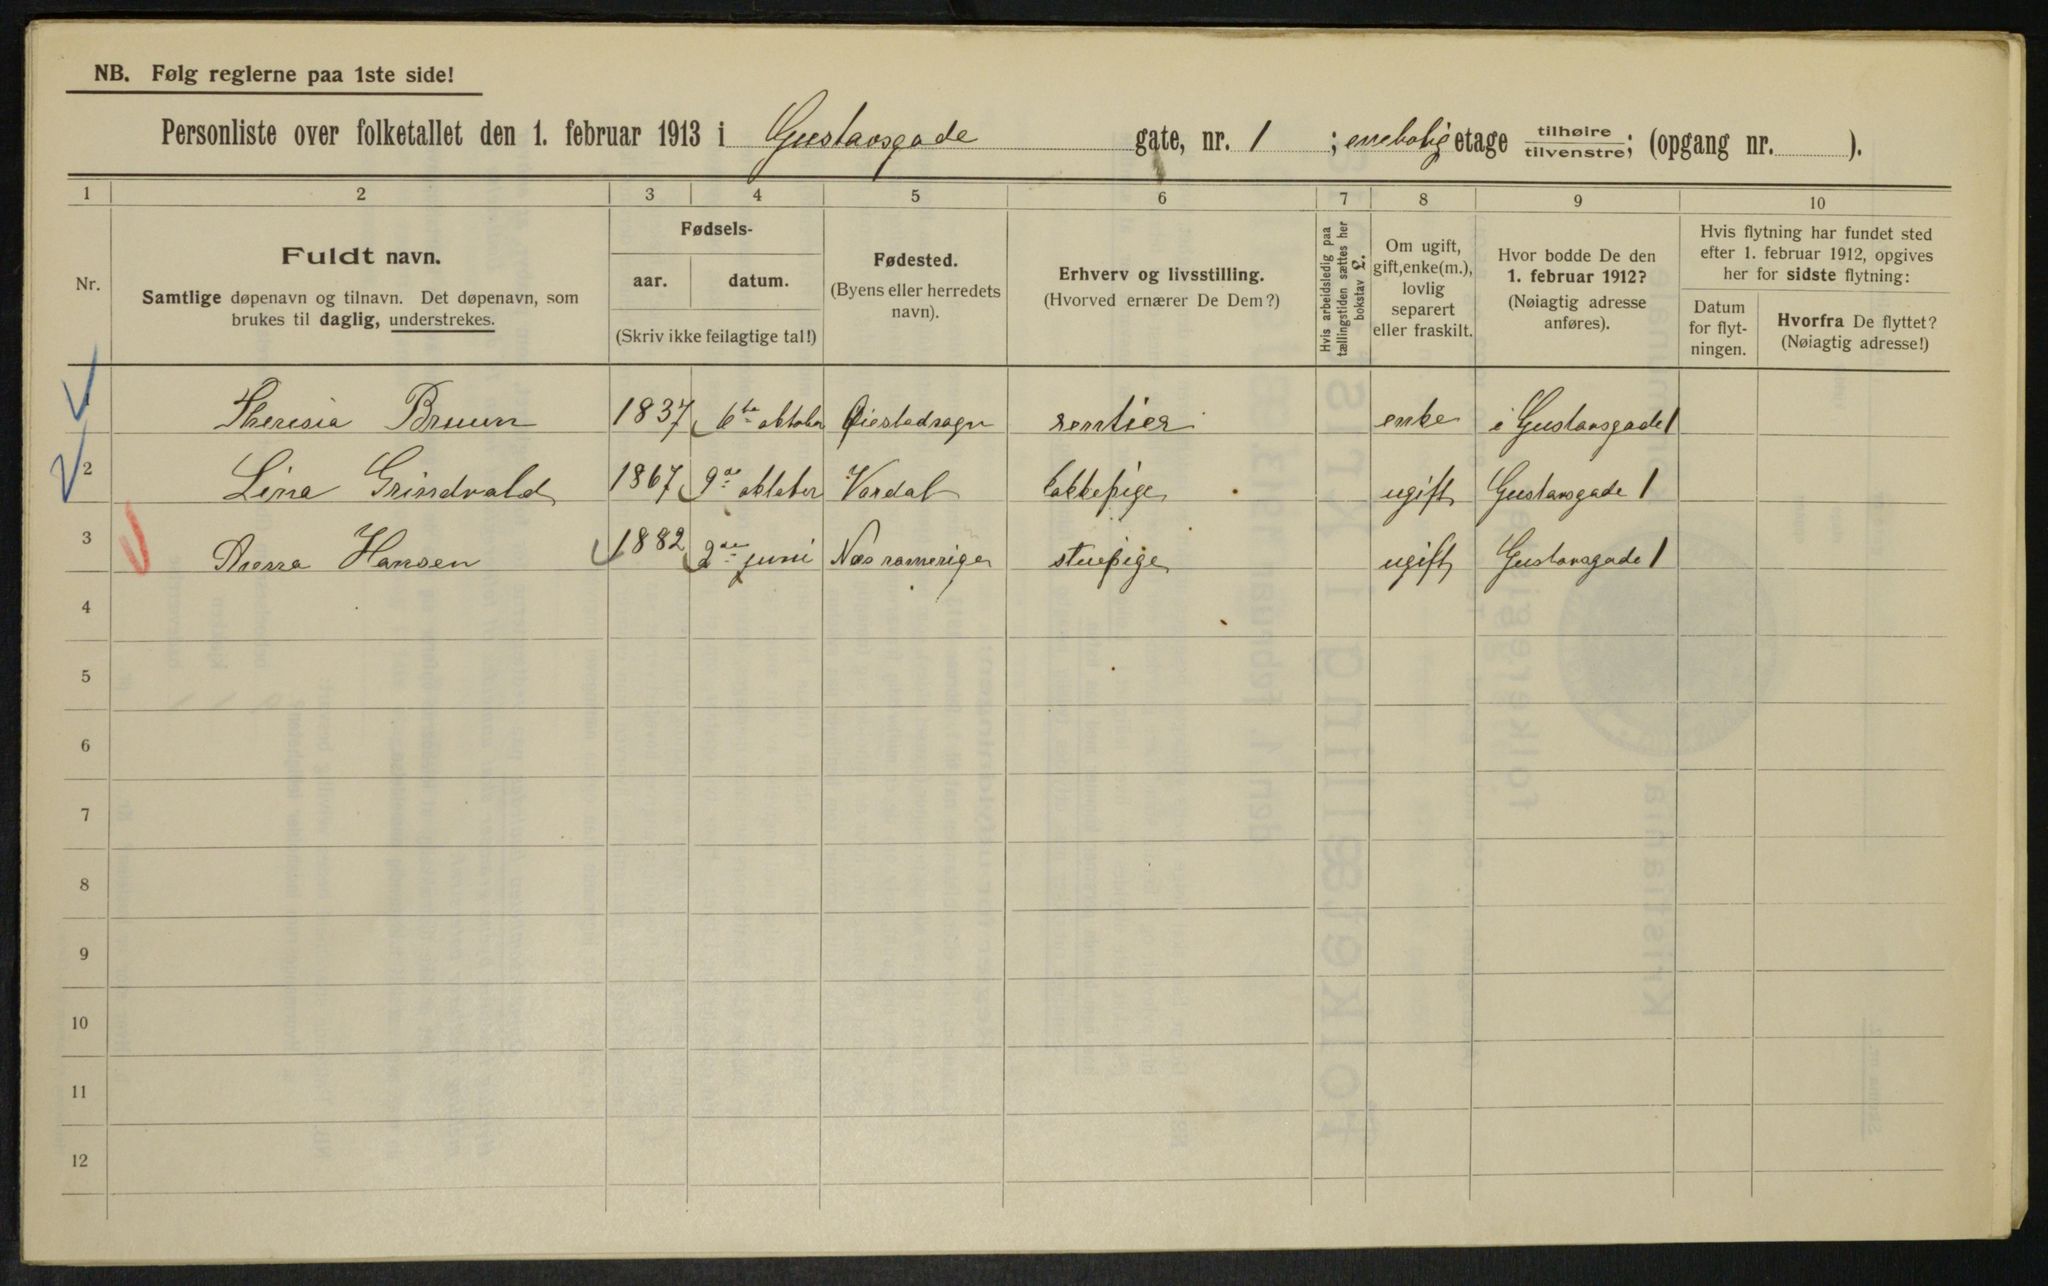 NB. Følg reglerne paa 1ste side!
Personliste over folketallet den 1. februar 1913 i Gustavsgade gate, nr. 1 ; enebolig etage tilhøire/tilvenstre; (opgang nr. ).
1 2 3 4 5 6 7 8 9 10
Nr.
Fuldt navn.
Samtlige døpenavn og tilnavn. Det døpenavn, som
brukes til daglig, understrekes.
Fødsels-
aar. datum.
(Skriv ikke feilagtige tal!)
Fødested.
(Byens eller herredets
navn).
Erhverv og livsstilling.
(Hvorved ernærer De Dem?)
Hvis arbeidsledig paa
tællingstiden sættes her
bokstav L.
Om ugift,
gift, enke(m.),
lovlig
separert
eller fraskilt.
Hvor bodde De den
1. februar 1912?
(Nøiagtig adresse
anføres).
Hvis flytning har fundet sted
efter 1. februar 1912, opgives
her for sidste flytning:
Datum
for flyt-
ningen.
Hvorfra De flyttet?
(Nøiagtig adresse!)
1 Theresia Bruun 1837 6te oktober Øiestadsogn rentier enke i Gustavsgade 1
2 Lina Grindvald 1867 9de oktober Vardal kokkepige ugift Gustavsgade 1
3 Hansen 1882 2den juni Næs romerige stuepige ugift Gustavsgade 1
4
5
6
7
8
9
10
11
12